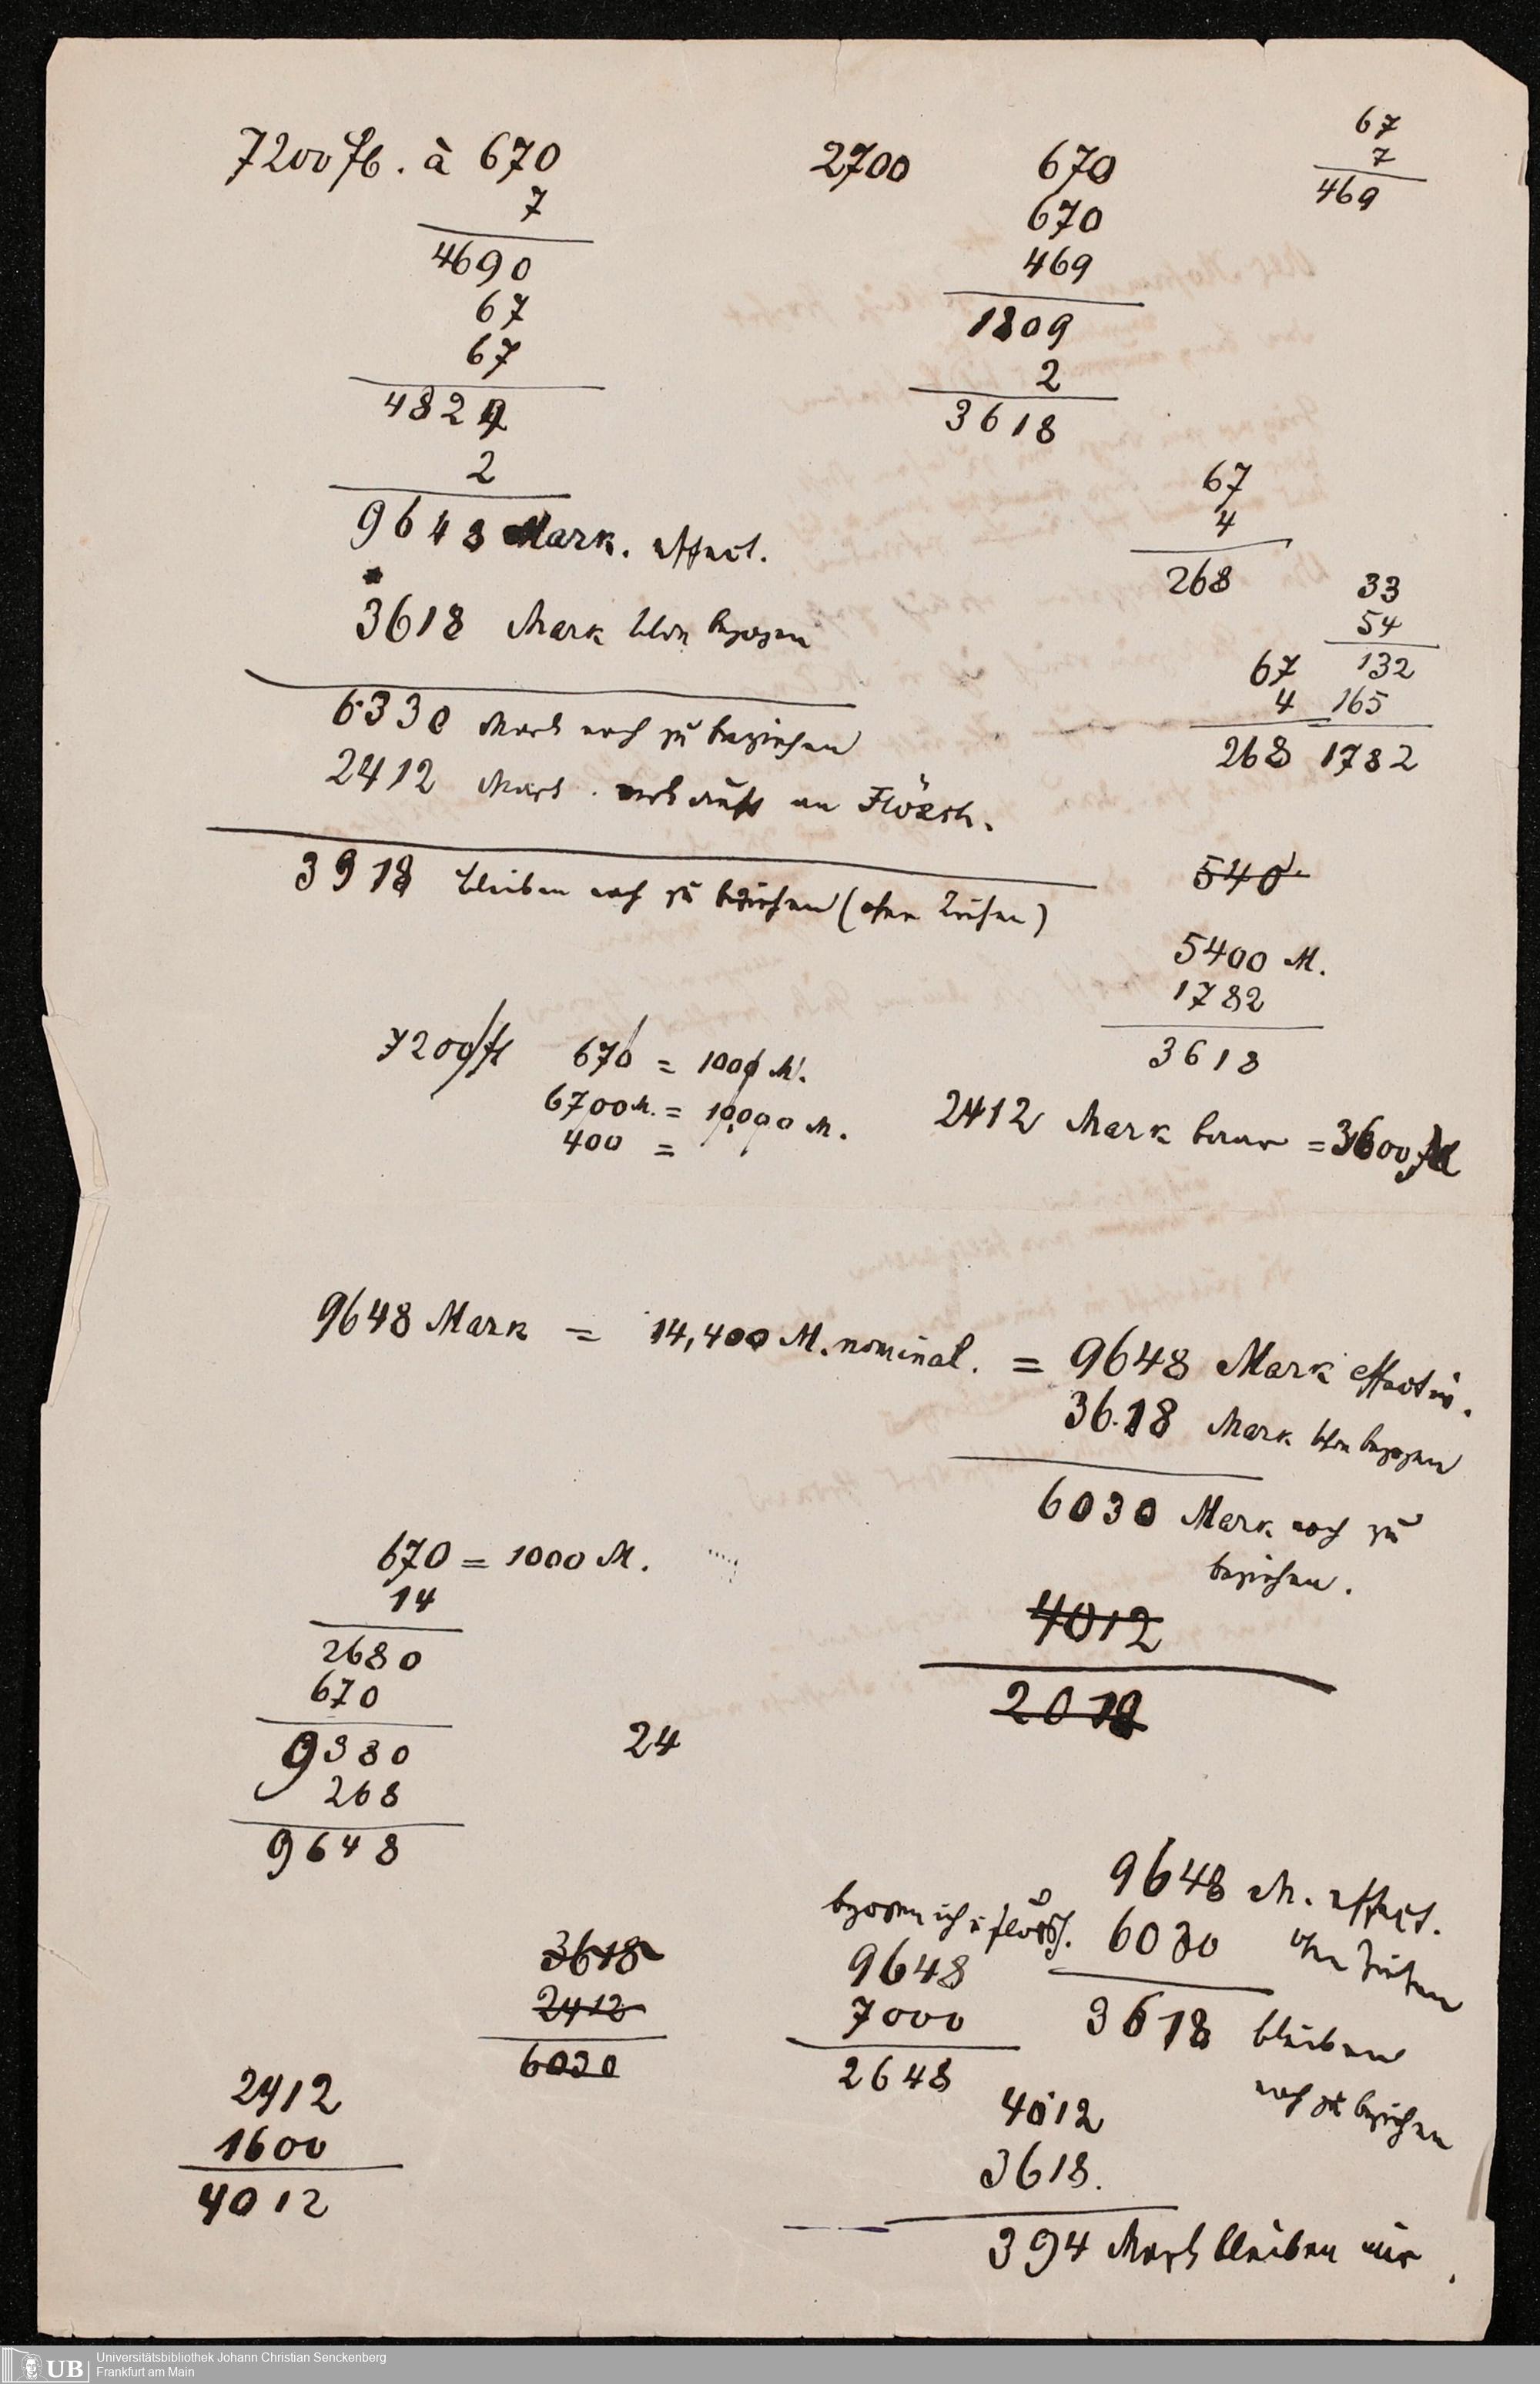 7200 fl. à 670
7
4690
67
67
4824
2
9648 Mark. effect.
3618 Mark schon bezogen
6330 Mark noch zu beziehen
2412 Mark verkauft an Flörsh.
3918 bleiben noch zu beziehen (ohne Zinsen)
2700
670
670
469
1809
2
3618
67
7
469
67
4
268
33
54
132
165
1782
67
4
268
540
5400 M.
1782
3618
7200 fl
670 = 1000 M.
6700 M. = 10,000 M.
400 =
2412 Mark baar = 3600 fl
9648 Mark = 14,400 M. nominal. = 9648 Mark effectiv.
3618 Mark schon bezogen
6030 Mark noch zu
beziehen.
4012
2018
670 = 1000 M.
14
2680
670
9380
268
9648
24
9648 M. effect.
6030 ohne Zinsen
3618 bleiben
noch zu beziehen
bezogen ich u. Flörsh.
9648
7000
2648
3618
2412
6030
2412
1600
4012
4012
3618.
394 Mark bleiben mir.